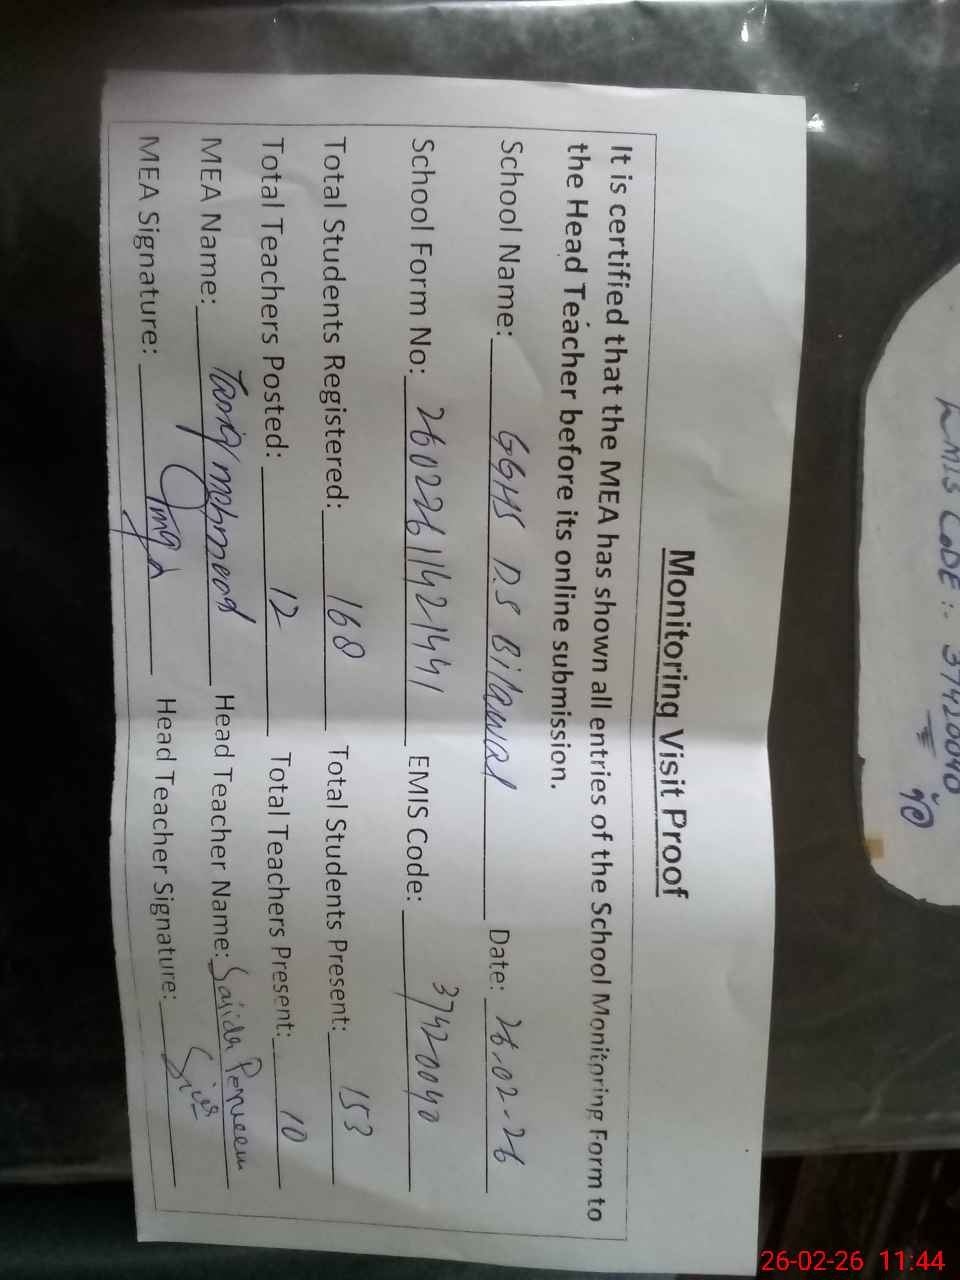 Monitoring Visit Proof
It is certified that the MEA has shown all entries of the School Monitoring Form to
the Head Teacher before its online submission.
School Name: GGHS D.S Bilawal Date: 26-02-26
School Form No: 26022611421441 EMIS Code: 37420040
Total Students Registered: 168 Total Students Present: 153
Total Teachers Posted: 12 Total Teachers Present: 10
MEA Name: Tariq mahmood Head Teacher Name: Sajida Perveen
MEA Signature: Head Teacher Signature:
CODE :- 37420040
26-02-26 11:44